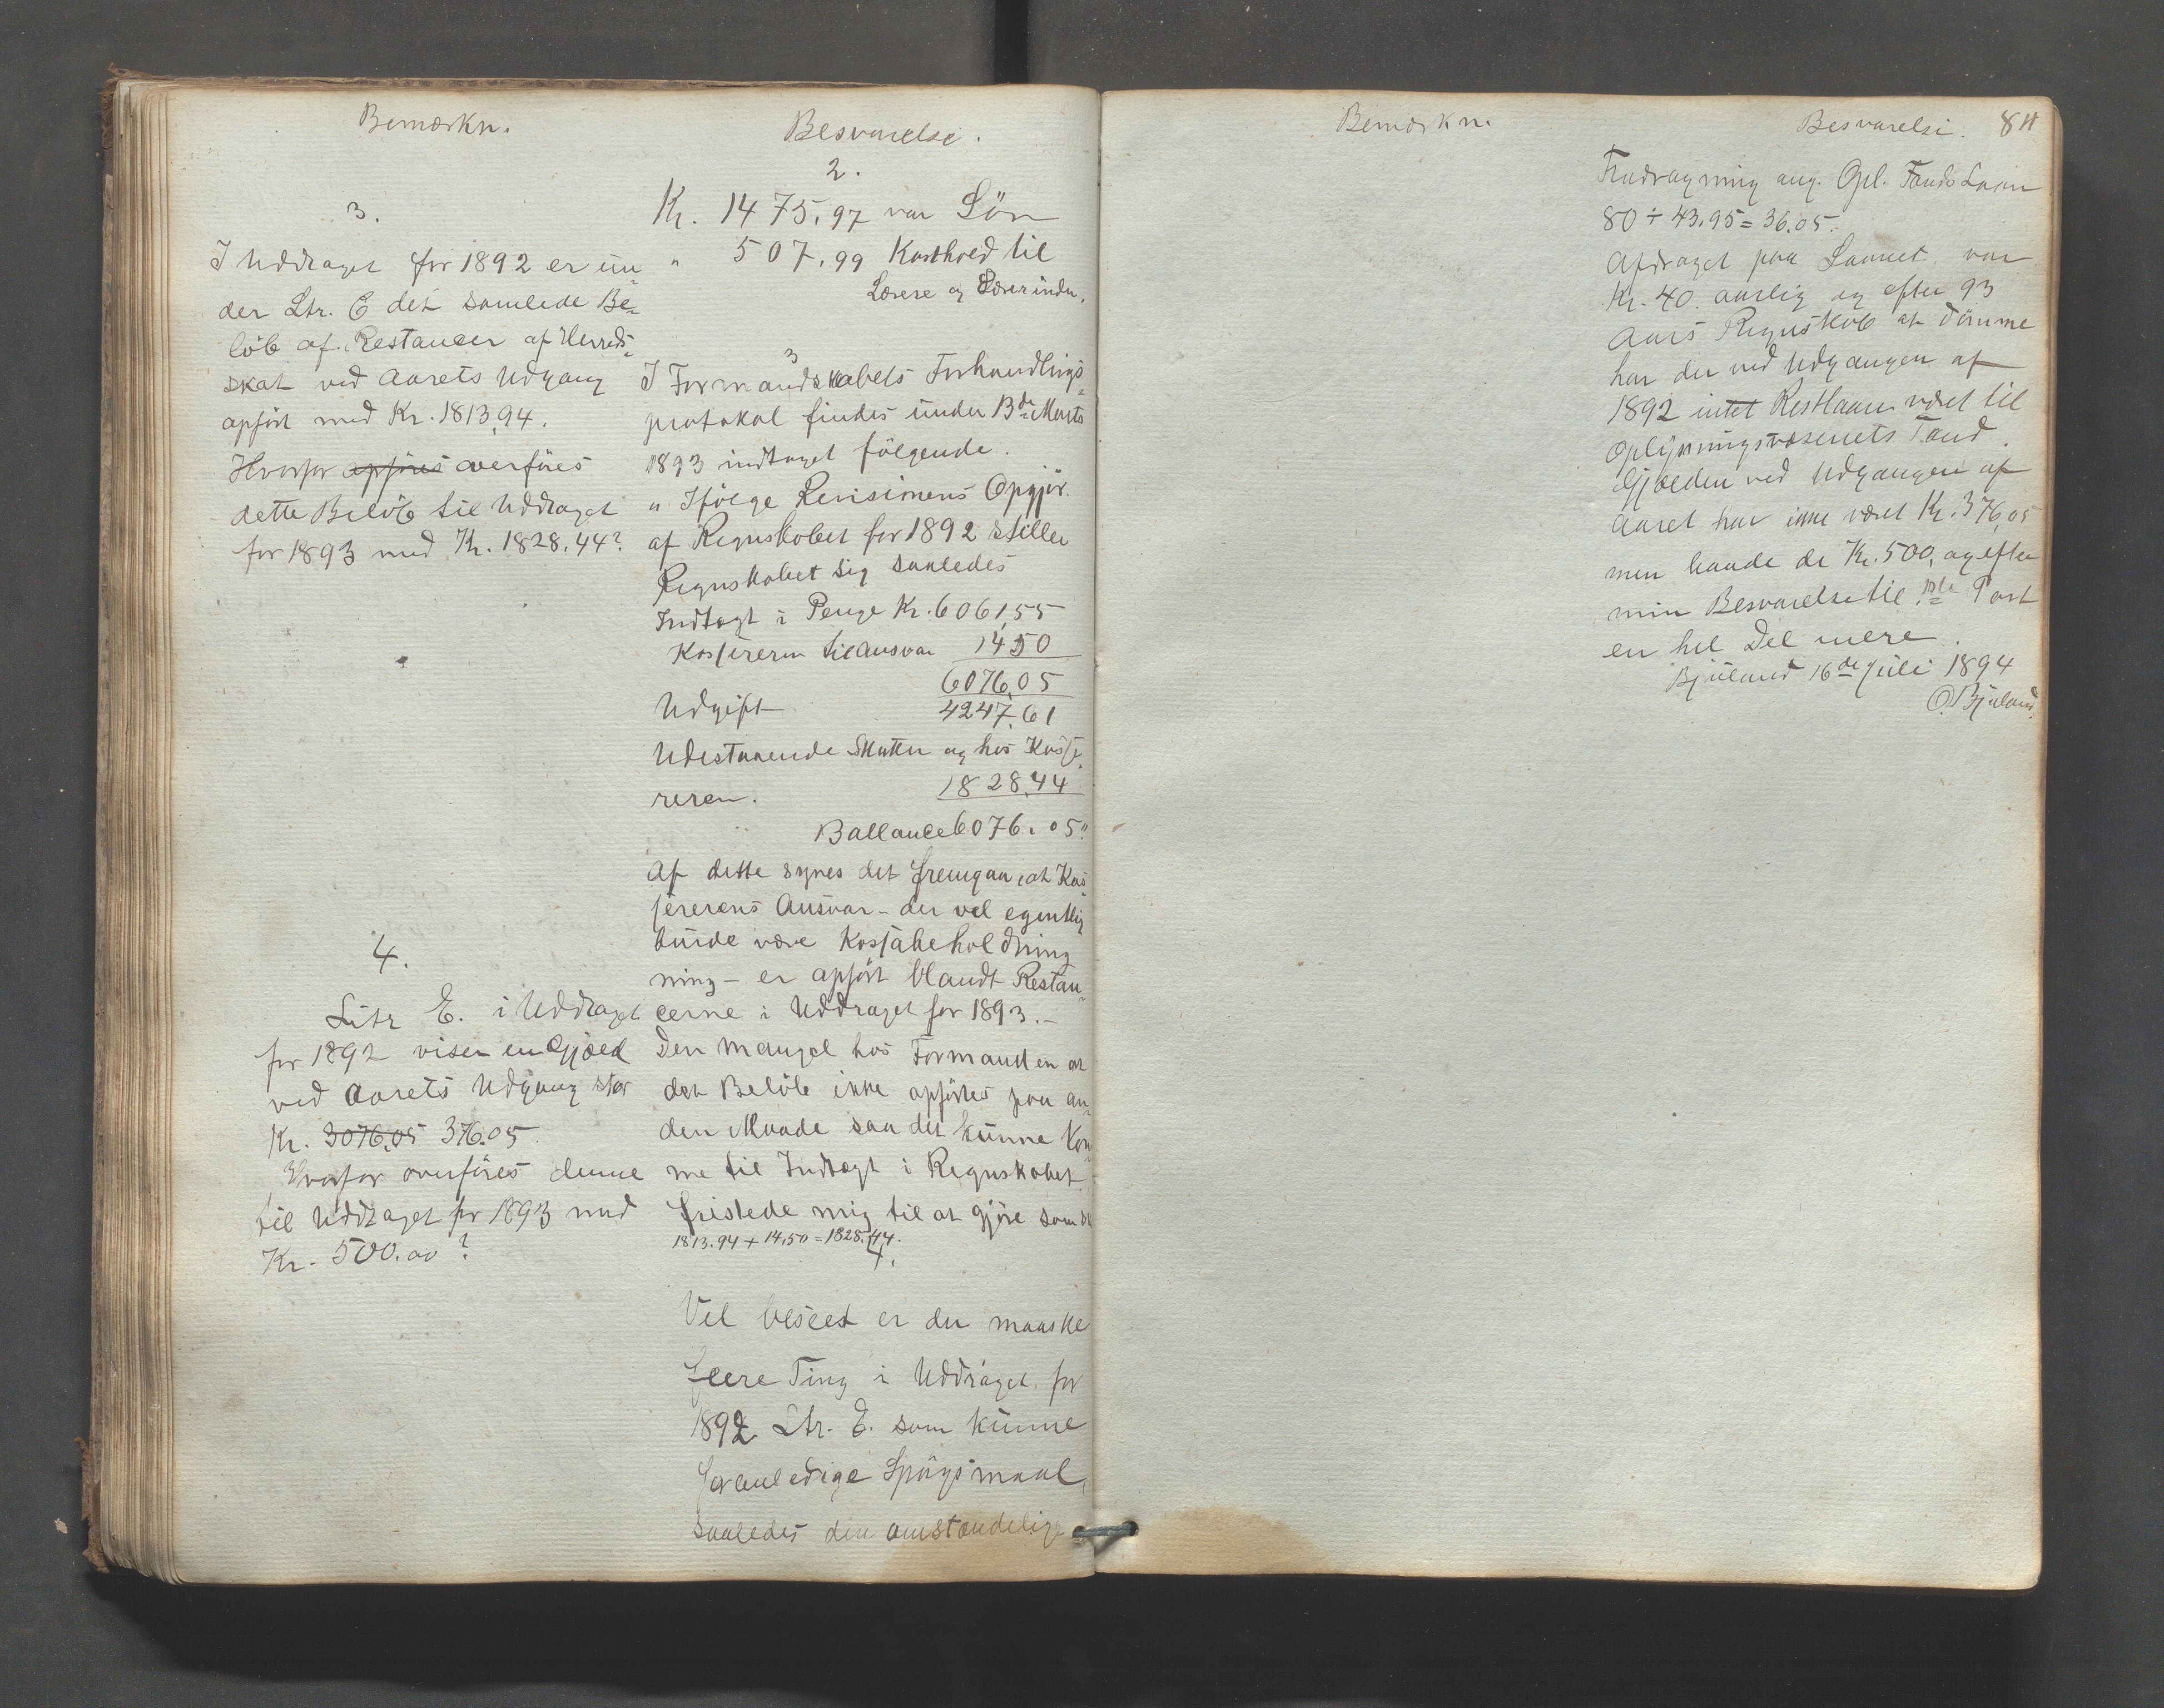 Bemærkn.
3.
I Uddraget for 1892 er un-
der Ltr. E det samlede Be-
löb af Restancer af Herreds-
skat ved Aarets Udgang
opfört med Kr. 1813,94.
Hvorfor opföres overföres
dette Belöb til Uddraget
for 1893 med Kr. 1828.44?
4.
Litr E. i Uddraget
for 1892 viser en Gjæld
ved Aarets Udgang stor
Kr. 3076,05 376.05.
Hvorfor overföres denne
til Uddraget for 1893 med
Kr. 500.00?
Besvarelse.
2.
Kr. 1475,97 var Lön
" 507,99 Kosthold til
Lærere og Lærerinder.
3
I Formandskabets Forhandlings-
protokol findes under 13de Marts
1893 indtaget fölgende.
" Ifölge Revisionens Opgjör
af Regnskabet for 1892 stiller
Regnskabet sig saaledes
Indtægt i Penge Kr. 6061,55
Kassereren til ansvar 1450
6076,05
Udgift 4247,61
Udestaaende Skatter og hos Kasse-
reren. 1828,44
Ballance 6076.05"
Af dette synes det fremgaa, at Kas-
sererens Ansvar - der vel egentlig
burde være Kassabeholdning
ning - er opfört blandt Restan-
cerne i Uddraget for 1893. -
Den Mangel hos Formanden at
det Belöb ikke opförtes paa an-
den Maade saa det kunne kom-
me til Indtægt i Regnskabet
fristede mig til at gjöre som
1813.94 + 14.50 = 1828.44.
4.
Vel blseet er der maaske
flere Ting i Uddraget for
1892 Ltr. E. som kunne
foranledige Spörgsmaal,
saaledes den omstændelige
Bemærkn.
Besvarelse. 84
Fradragning ang. Opl. Fonds Laan
80 ÷ 43.95 = 36.05.
Afdraget paa Laanet var
Kr. 40. aarlig og efter 93
Aars Regnskab at dömme
har der ved Udgangen af
1892 intet Restlaan været til
Oplysningsvæsenets Fond.
Gjælden ved Udgangen af
Aaret har ikke været Kr. 376,05
men baade de Kr. 500, og efter
min Besvarelse til 1ste Post
en hel Del mere.
Bjuland 16de Juli 1894
O. Bjuland.